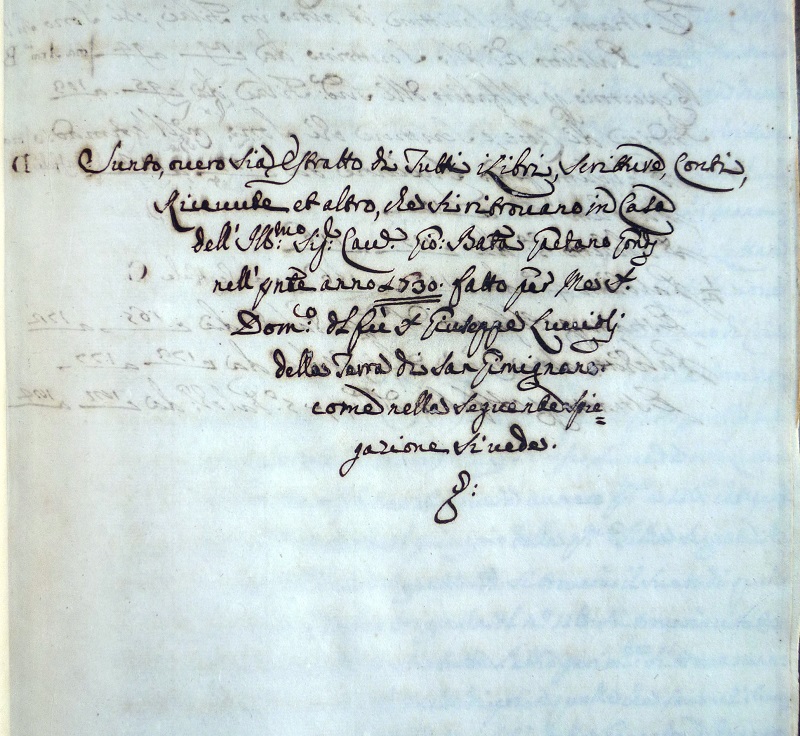 Sunto, overo sia Estratto di Tutti i Libri, Scritture, Conti,
Ricevute et altro, che si ritrovano in Casa
dell' Ill:mo Sig:r Cav:r Gio: Batta Gaetano
nell' pnte anno 1730. fatto per Me
Dom:co del fù Giuseppe
della Terra di San Gimignano
come nella seguente spie=
gazione si vede.